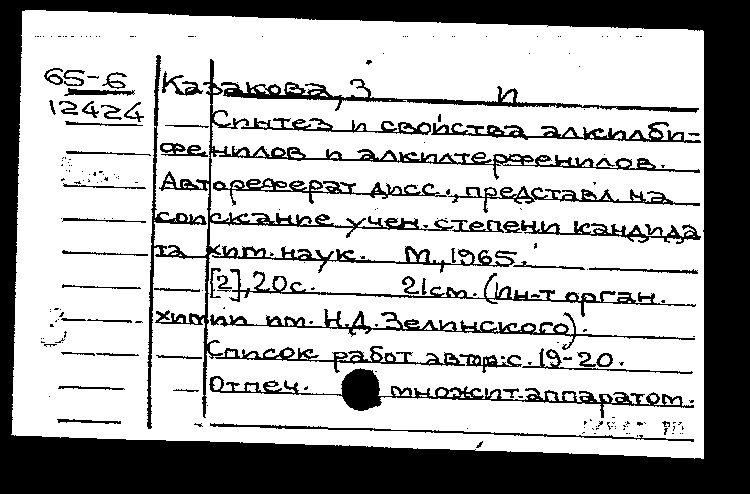 65-6
12424
Казакова, З п
Синтез и свойства алкилби=
фенилов и алкилтерфенилов.
Автореферат дисс., представл. на
соискание учен. степени кандида
та хим. наук. М., 1965.
[2], 20с. 21см. (Ин-т орган.
химии им. Н.Д. Зелинского).
Список работ автора: с. 19-20.
Отпеч. множит. аппаратом.